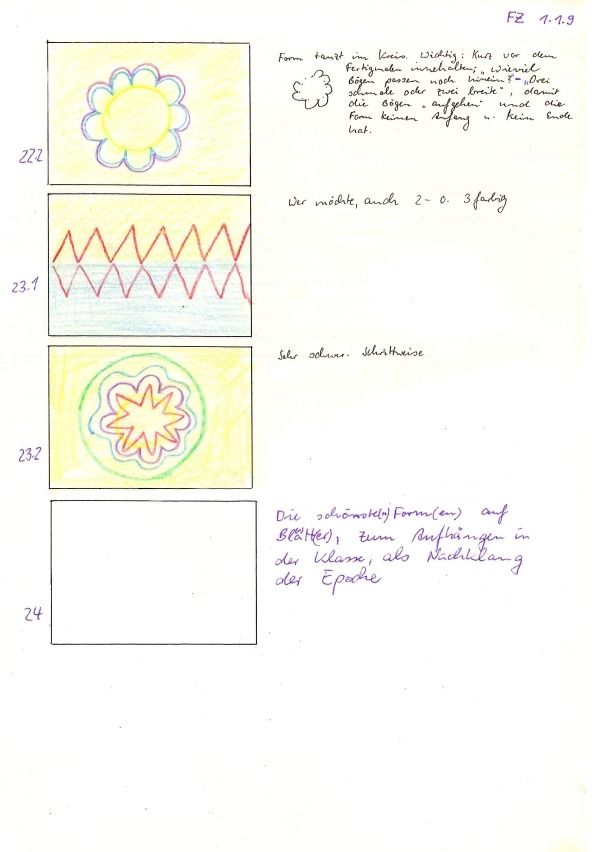 FZ 1.1.9
22.2
Form tanzt im Kreis. Wichtig: Kurz vor dem
Fertigwerden innehalten; "Wieviel
Bögen passen noch hinein?" - "Drei
schmale oder zwei breite", damit
die Bögen "aufgehen" und die
Form keinen Anfang u. kein Ende
hat.
23.1
Wer möchte, auch 2- o. 3farbig
23.2
Sehr schwer. Schrittweise
24
Die schönste(n) Form(en) auf
Blätt(er), zum Aufhängen in
der Klasse, als Nachklang
der Epoche